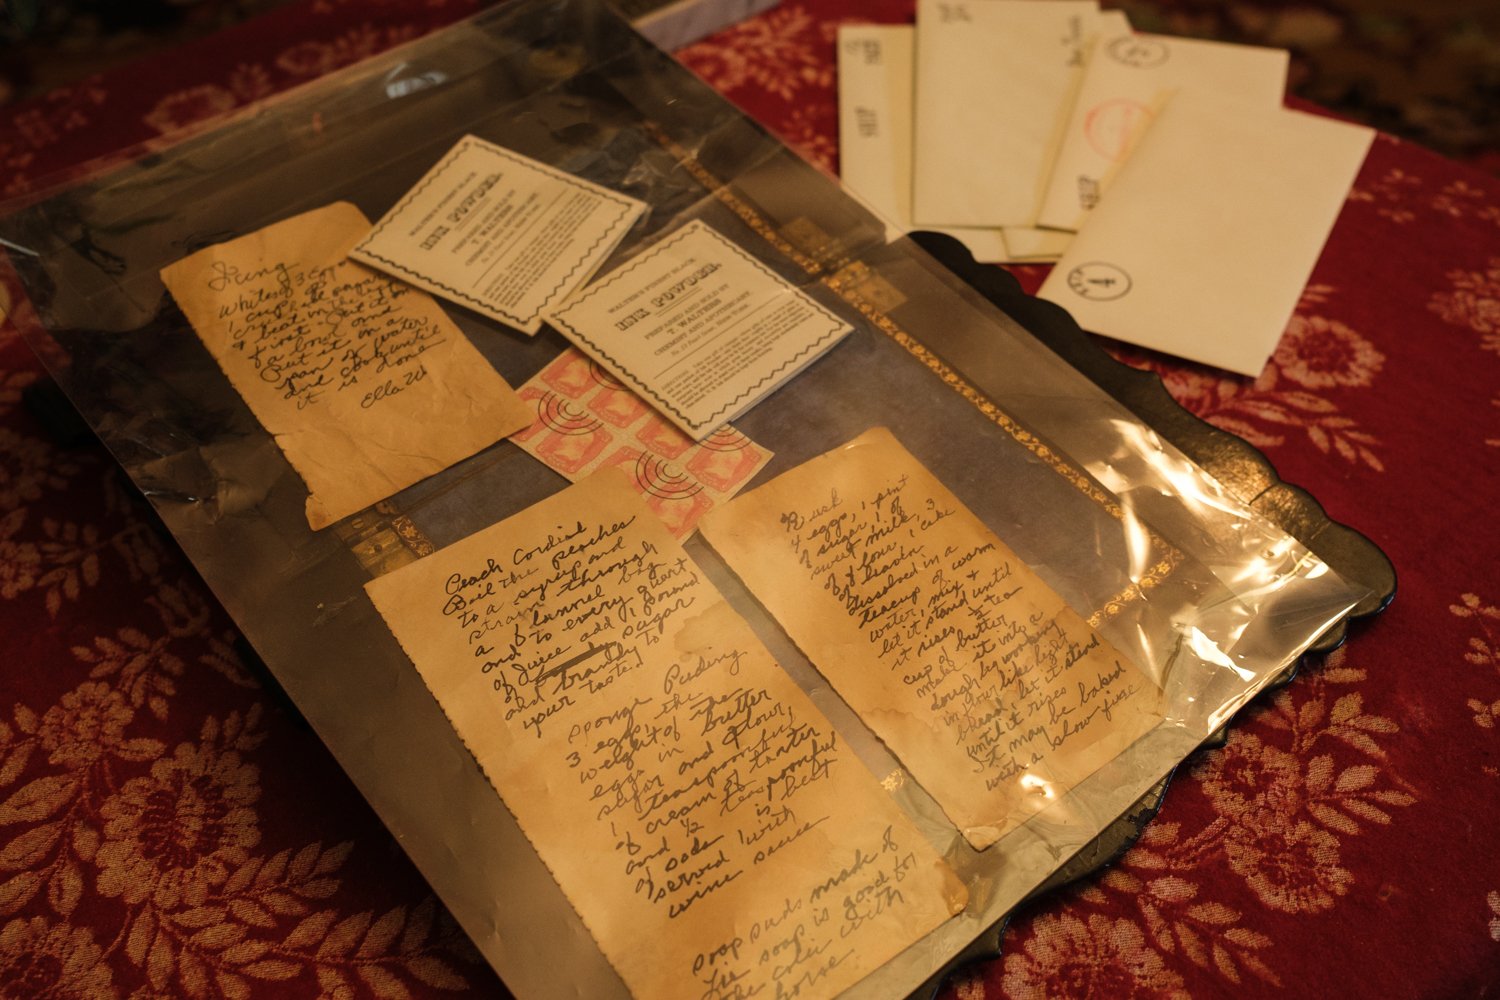 Icing
Whites of 3 Eggs
1 cup of sugar
& beat in the
first. Put it in
a bowl and
put it in a
pan of water
and cook until
it is done
Ella W
WALTER'S FINEST BLACK
INK POWDER,
PREPARED AND SOLD BY
T. WALTERS
CHEMIST AND APOTHECARY
WALTER'S FINEST BLACK
INK POWDER,
PREPARED AND SOLD BY
T. WALTERS
CHEMIST AND APOTHECARY
Peach Cordial
Boil the peaches
to a syrup and
strain through
a flannel bag
and to every quart
of juice add 1 pound
of sugar
and brandy to
your taste.
Sponge Puding
3 eggs, the
weight of the
eggs in butter
sugar and flour,
1 teaspoonful
of cream of tarter
and 1/2 teaspoonful
of soda is best
served with
wine sauce
soap suds made of
Lie soap is good for
the colic with
horse
Rusk
4 eggs, 1 pint
of sugar, 1 of
sweet milk, 3
of flour, 1 cake
of leaven
dissolved in a
teacup of warm
water, mix &
let it stand until
it rises 1/2 tea
cup of butter
make it into a
dough by working
in flour like light
bread, let it stand
until it rises
It may be baked
with a slow fire
SHIP
SHIP
SHIP
4